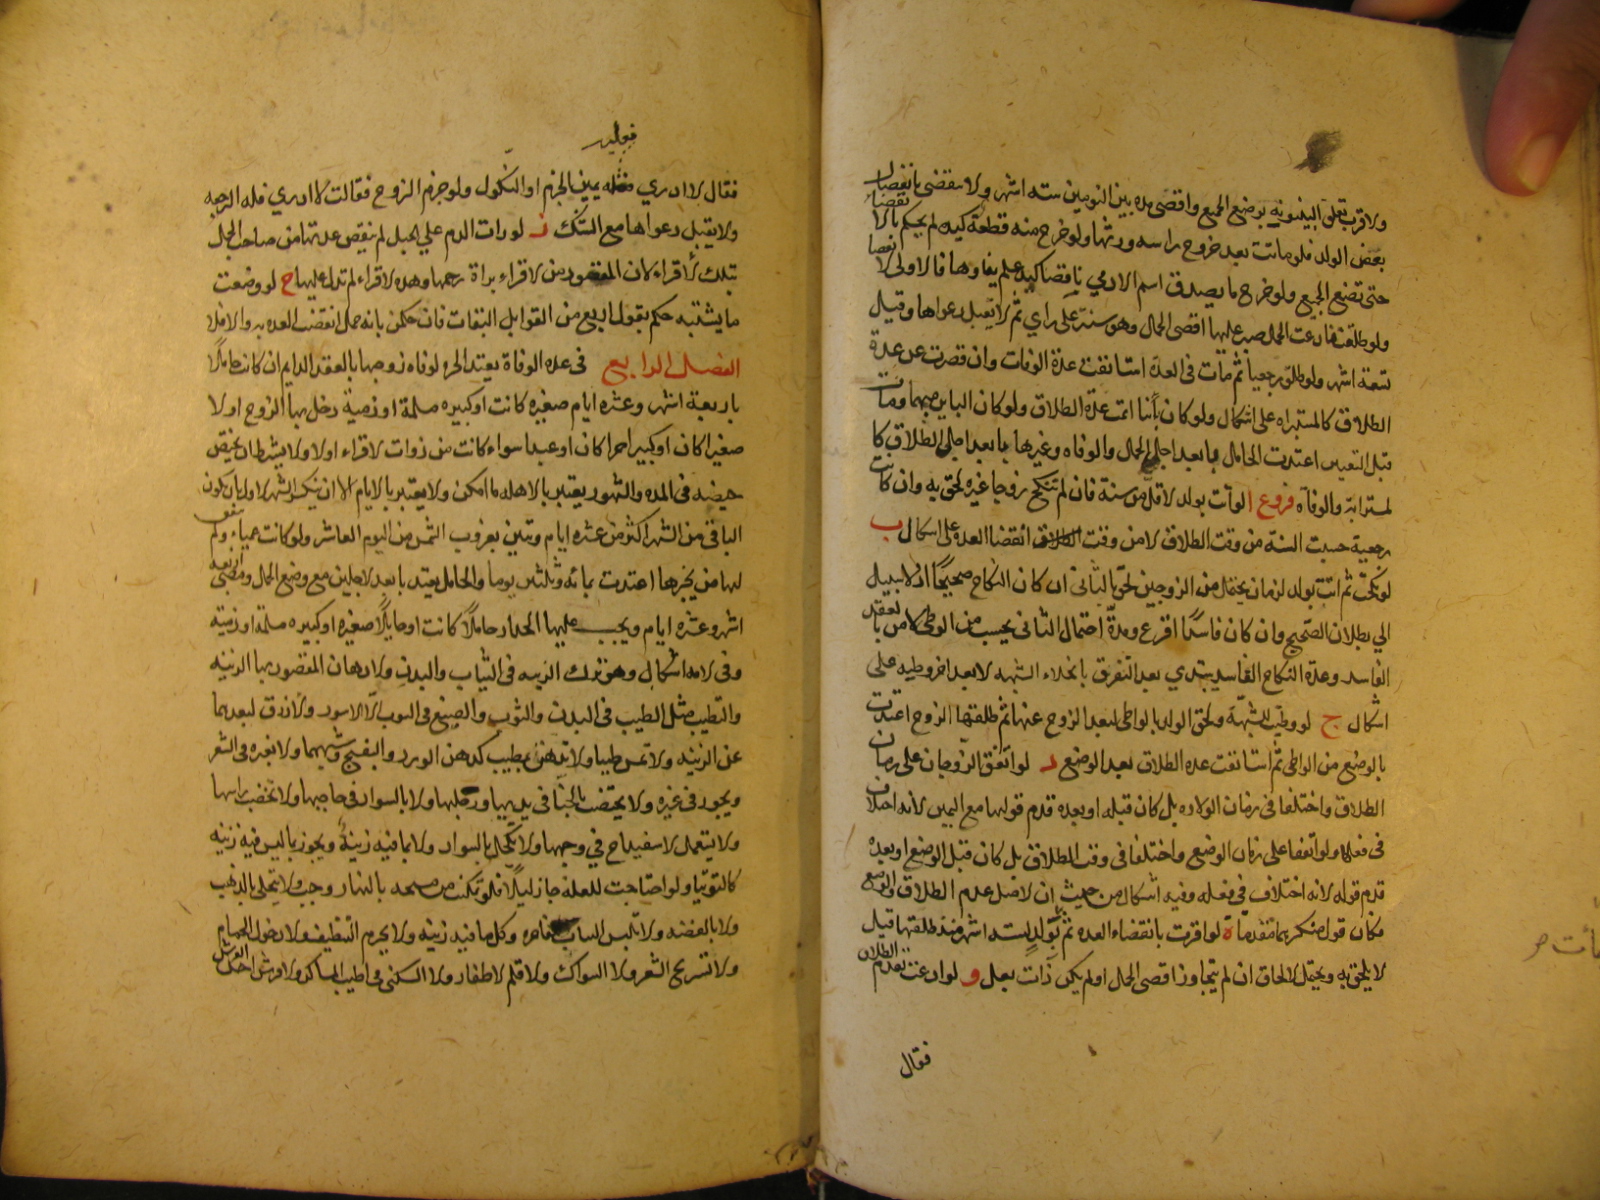 ولاقرب تعلق البينونة بوضع الجميع واقصى مده بين التومين سته اشهر ولا ينقضى بانفصال
بعض الولد فلو ماتت بعد خروج راسه ورثها ولو خرج منه قطعة كيد لم يحكم بالانقضاء
حتى تضع الجميع ولو خرج ما يصدق اسم الادمي ناقصا كيد علم بقاوها فالاولى الانقضا
ولو طلقت فادعت الحمل صبر عليها اقصى الحمل وهو سنة على راي ثم لا يقبل دعواها وقيل
تسعة اشهر ولو طلق رجعيا ثم مات فى العدة استانفت عدة الوفات وان قصرت عن عدة
الطلاق كالمسترابه على اشكال ولو كان بائنا اتمت عدة الطلاق ولو كان الباين مبهما ومات
قبل التعيين اعتدت الحامل بابعد اجلي الحمل والوفاه وغيرها بابعد اجلي الطلاق كا
لمسترابة والوفاه فروع ا لو اتت بولد لاقل من سنة فان لم تنكح زوجا غيره لحق به وان كانت
رجعية حسبت السنة من وقت الطلاق لا من وقت انقضا العده على اشكال ب
لو نكحت ثم اتت بولد لزمان يحتمل من الزوجين لحق بالثانى ان كان النكاح صحيحا اذ لا سبيل
الي بطلان الصحيح وان كان فاسدا اقرع ومدة احتمال الثانى يحسب من الوطى لا من العقد
الفاسد وعدة النكاح الفاسد يبتدي بعد التفرق بانجلاء الشبهه لا بعد اخر وطيه على
اشكال ج لو وطيت للشبهة ولحق الولد بالواطى لبعد الزوج عنها ثم طلقها الزوج اعتدت
بالوضع من الواطى ثم استانفت عده الطلاق بعد الوضع د لو اتفق الزوجان على زمان
الطلاق واختلفا فى زمان الولاده بل كان قبله او بعده قدم قولها مع اليمين لانه اختلاف
فى فعلها ولو اتفقا على زمان الوضع واختلفا فى وقت الطلاق بل كان قبل الوضع او بعده
قدم قوله لانه اختلاف فى فعله وفيه اشكال من حيث ان لاصل عدم الطلاق والوضع
فكان قول منكر بهما مقدما ة لو اقرت بانقضاء العده ثم بولد لسته اشهر منذ طلقها قيل
لا يلحق به ويحتمل لالحاق ان لم يتجاوز اقصى الحمل او لم يكن ذات بعل و لو ادعت تقدم الطلاق
فقال
فقال لا ادري فعليه يمين الجزم او النكول ولو جزم الزوج فقالت لا ادري فله الرجعه
ولا يقبل دعواها مع الشك ز لو رات الدم علي الحبل لم ينقض عدتها من صاحب الحمل
بتلك لاقراء لان المقصود من لاقراء براة رحمها وهذه لاقراء لم تدل عليها ح لو وضعت
ما يشتبه حكم بقول اربع من القوابل الثقات فان حكمن بانه حمل انقضت العده به والا فلا
الفصل الرابع فى عده الوفاة يعتد الحره لوفاه زوجها بالعقد الدايم ان كانت حاملا
باربعة اشهر وعشره ايام صغيره كانت او كبيره مسلمة او ذمية دخل بها الزوج او لا
صغيرا كان او كبيرا حرا كان او عبدا سواء كانت من ذوات لاقراء او لا ولا يشترط ان يحيض
حيضه فى المده والشهور يعتبر بالاهله ما امكن ولا يعتبر بالايام الا ان ينكسر الشهر الاول بان يكون
الباقى من الشهر اكثر من عشره ايام وتبين بغروب الشمس من اليوم العاشر ولو كانت عمياء ولم يتفق
لها من يخبرها اعتدت بمائه وثلثين يوما والحامل يعتد بابعد لاجلين مع وضع الحمل ومضى اربعة
اشهر وعشره ايام ويجب عليها الحداد حاملا كانت او حايلا صغيره او كبيره مسلمة او ذمية
وفى لامه اشكال وهو ترك الزينه فى الثياب والبدن ولادهان المقصود بها الزينه
والتطيب مثل الطيب فى البدن والثوب والصبغ فى الثوب الا الاسود ولازرق لبعدهما
عن الزينه ولا تمس طيبا ولا تدهن بمطيب كدهن الورد والبنفسج وشبههما ولا بغيره فى الشعر
ويجوز فى غيره ولا يختضب بالحنا فى يديها ورجليها ولا بالسواد فى حاجبها ولا تخضب راسها
ولا يتعمل لاسفيداج في وجهها ولا تكتحل بالسواد ولا بما فيه زينة ويجوز بما ليس فيه زينه
كالتوتيا ولو احتاجت للعلة جاز ليلا فلو تمكنت من مسحه بالنهار وجب ولا يتحلى بالذهب
ولا بالفضه ولا تلبس الثياب فاخره وكل ما فيه زينه ولا يحرم التنظيف ولا دخول الحمام
ولا تسريح الشعر ولا السواك ولا قلم لاظفار ولا السكنى فى اطيب المساكن ولا فرش احسن الفرش